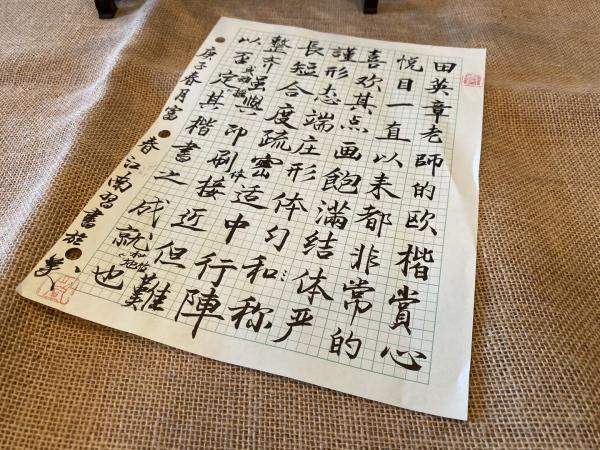 田英章老師的欧楷賞心
悦目一直以来都非常的
喜欢其点画飽滿結体严
謹形态端庄形体匀和称
長短合度疏密适中行陣
整齐虽與印刷体接近但難
以否定其楷書之成就和地位也
庚子春月富春江南習書於